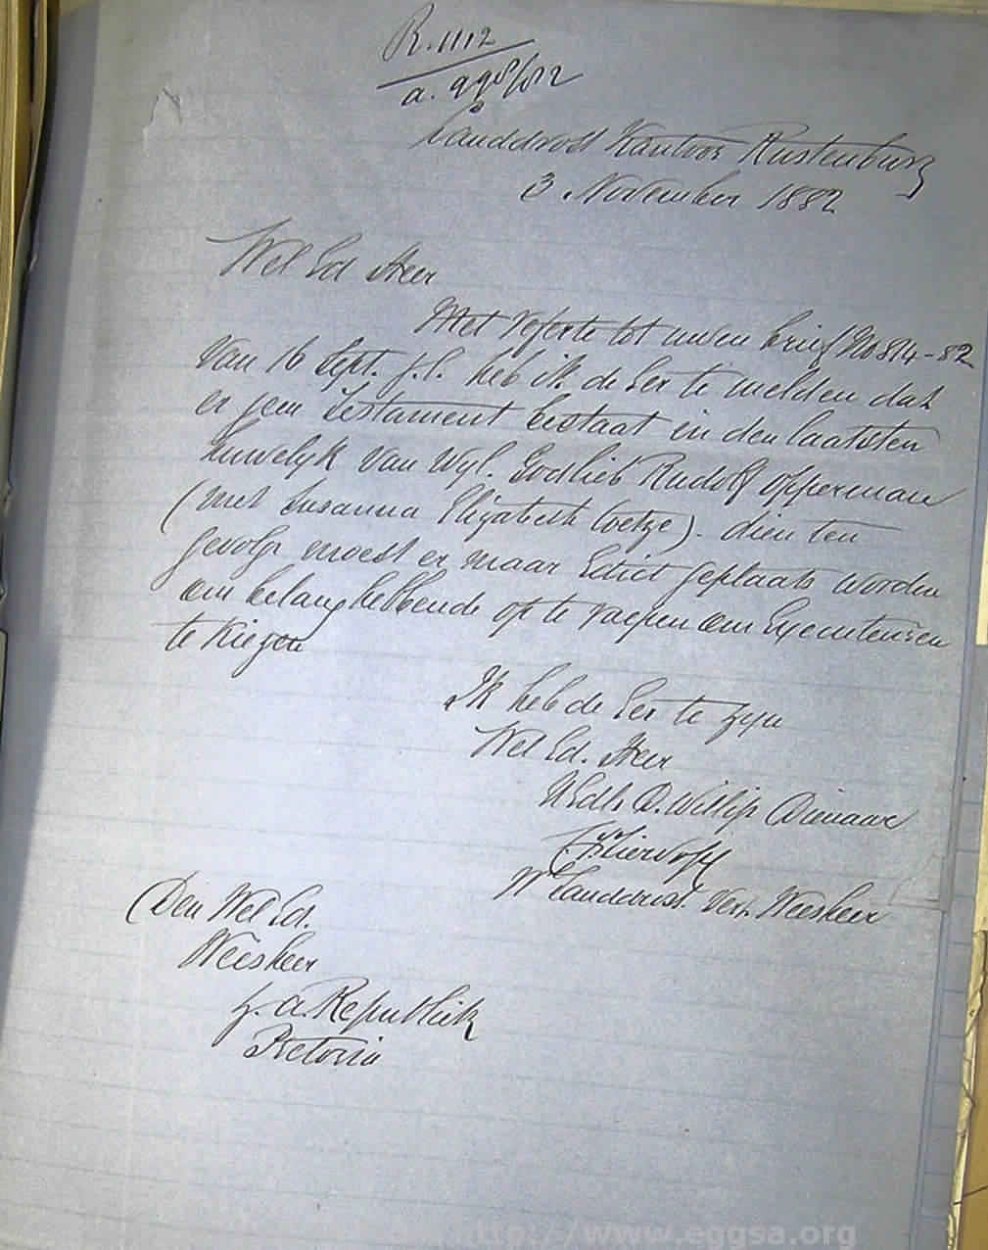 R. 1112
a. 998/82
Landdrost Kantoor Rustenburg
3 November 1882
Wel Ed Heer
Met referte tot uwen brief No 814-82
van 16 Sept. j.l. heb ik de Eer te melden dat
er geen Testament bestaat in den laatsten
huwelyk van Wyl. Godlieb Rudolf Opperman
(met Susanna Elizabeth Coetze). dien ten
gevolge moest er maar Edict geplaats worden
om belanghebbende op te roepen om Executeuren
te kiezen
Ik heb de Eer te zyn
Wel Ed. Heer
UEdls D. Willige Dienaar
Wd Landdrost. Vert. Weesheer
Den Wel Ed.
Weesheer
Z. A. Republiek
Pretoria
http://www.eggsa.org